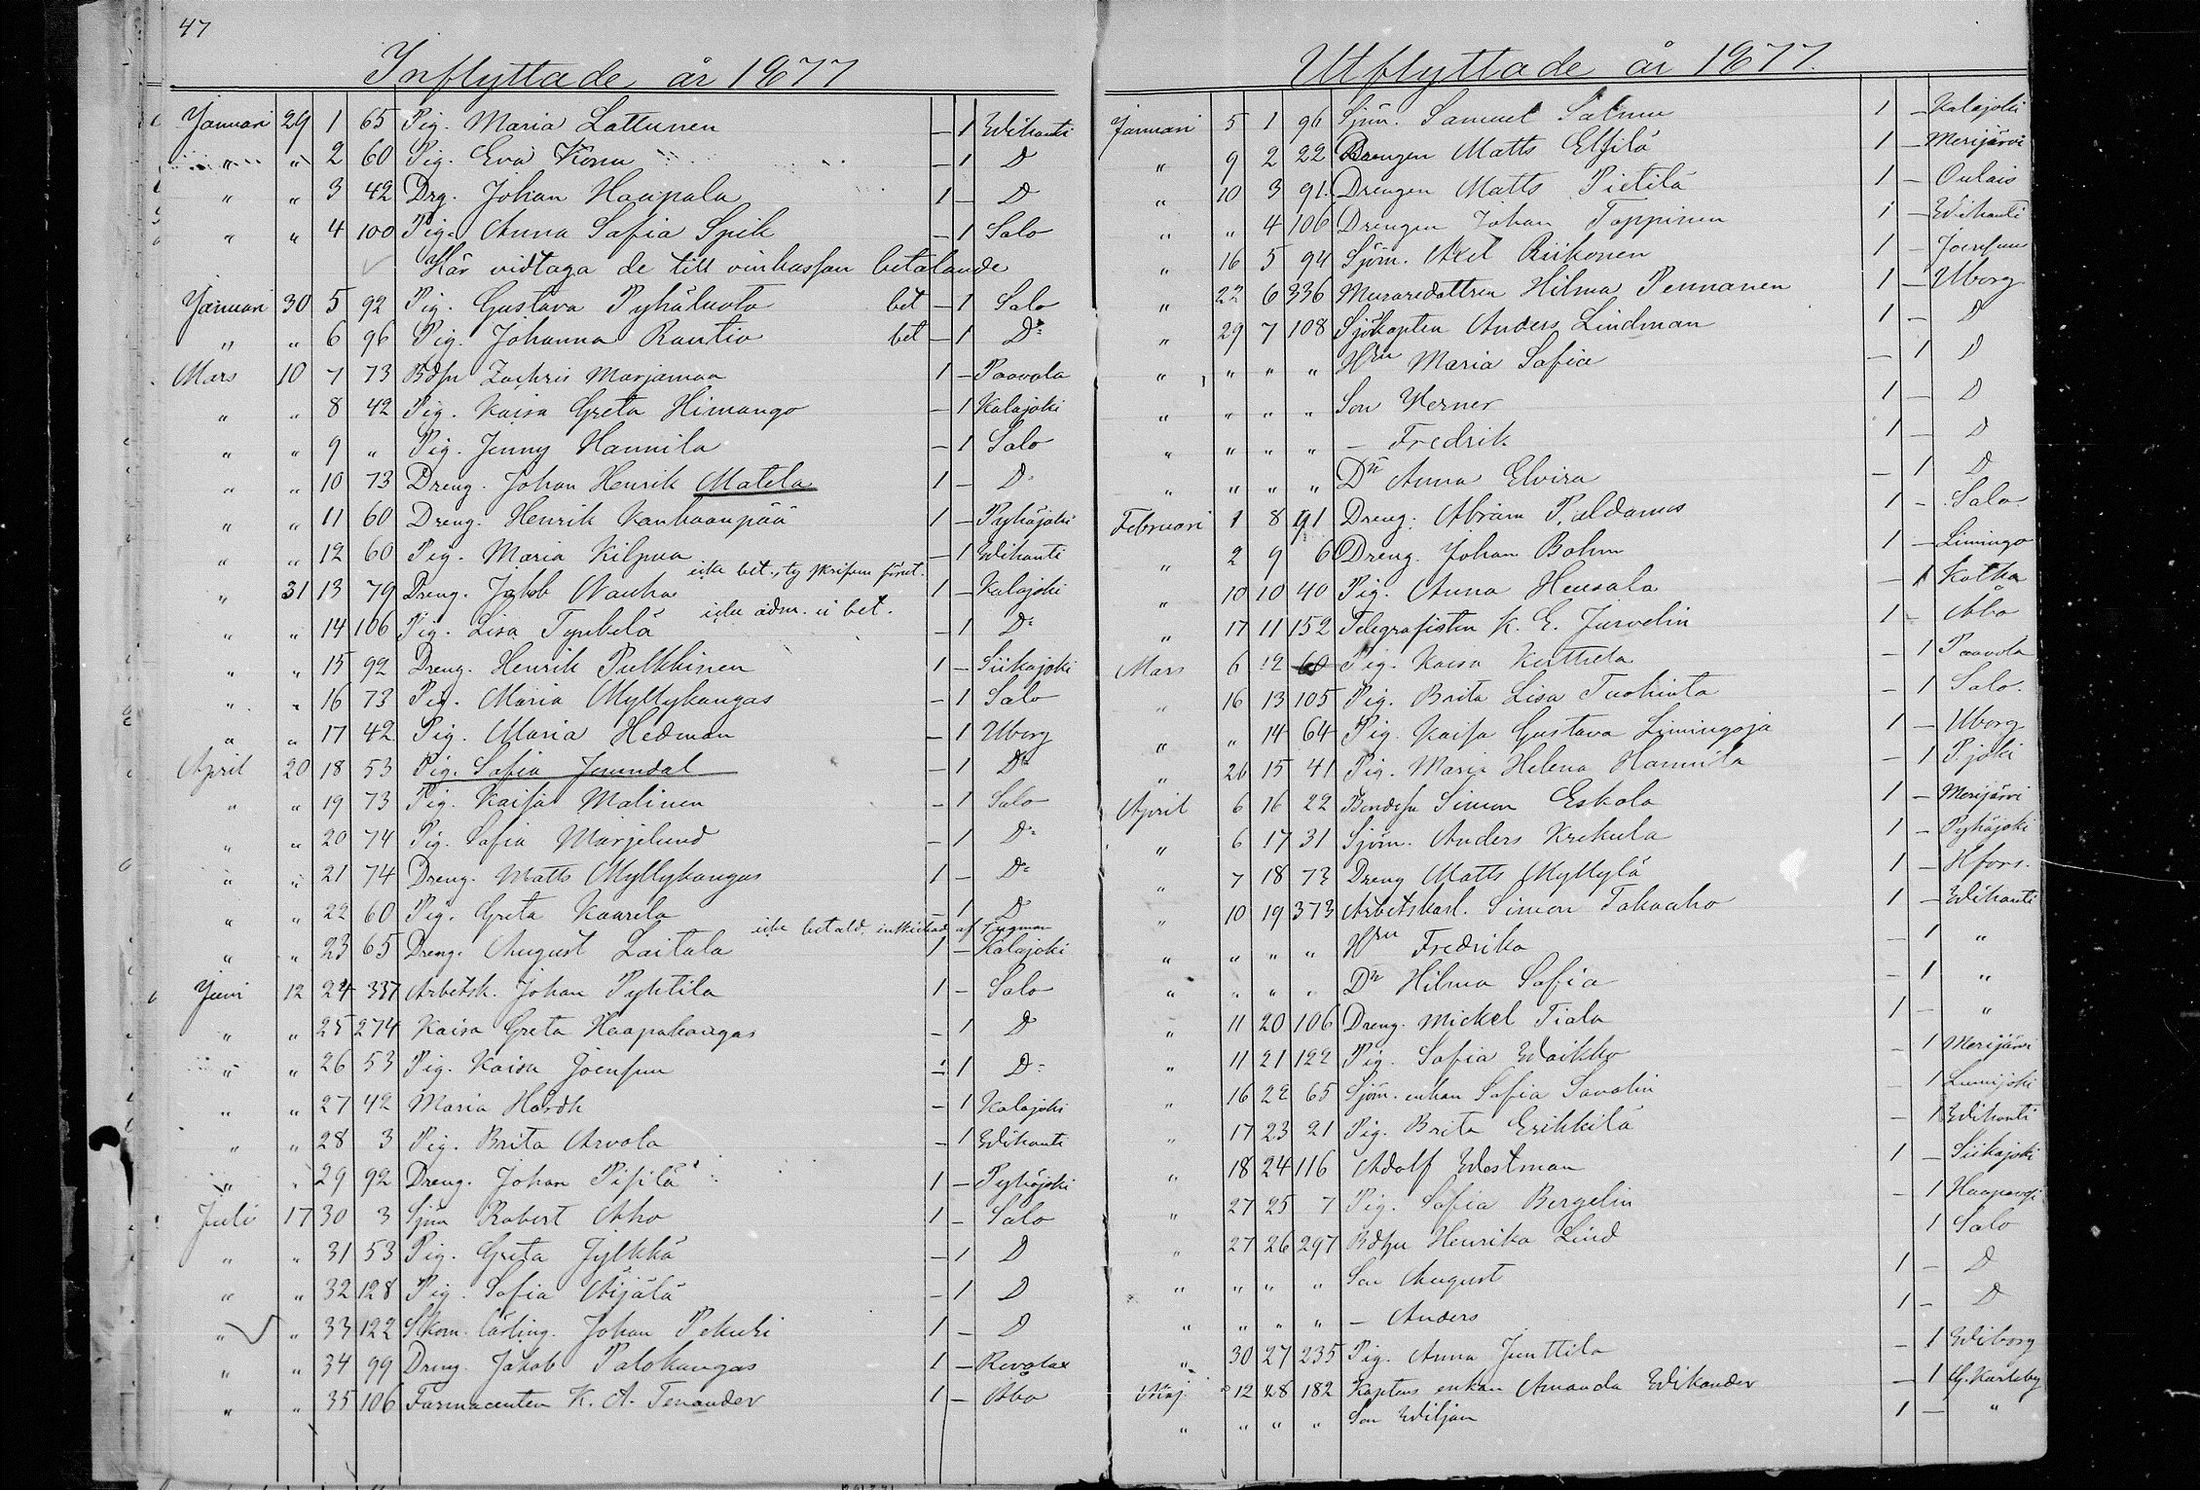 47
Inflyttade år 1877
Januari 29 1 65 Pig. Maria Lattunen — 1 Wihanti
" " 2 60 Pig. Eva Konu — 1 D
" " 3 42 Drg. Johan Haapala 1 — D
" " 4 100 Pig. Anna Sofia Spik — 1 Salo
Här vidtaga de till vinkassan betalande
Januari 30 5 92 Pig. Gustava Pyhäluoto bet — 1 Salo
" " 6 96 Pig. Johanna Rautio bet — 1 D:
Mars 10 7 73 Zachris Marjamaa 1 — Paavola
" " 8 42 Pig. Kaisa Greta Himango — 1 Kalajoki
" " 9 " Pig. Jenny Hannila — 1 Salo
" " 10 73 Dreng. Johan Henrik Matela 1 — D:
" " 11 60 Dreng. Henrik Kanhaanpää 1 — Pyhäjoki
" " 12 60 Pig. Maria Kilpua — 1 Wihanti
icke bet., ty
" 31 13 79 Dreng. Jakob Wanha 1 — Kalajoki
icke adm. ei bet.
" " 14 106 Pig. Lisa Tynkelä — 1 D:
" " 15 92 Dreng. Henrik Pulkkinen 1 — Siikajoki
" " 16 73 Pig. Maria Myllykangas — 1 Salo
" " 17 42 Pig. Maria Hedman — 1 Uborg
April 20 18 53 Pig. Sofia — 1 D:
" " 19 73 Pig. Kaisa Malinen — 1 Salo
" " 20 74 Pig. Sofia Marjelund — 1 D:
" " 21 74 Dreng. Matts Myllykangas 1 — D:
" " 22 60 Pig. Greta Kaarela — 1 D
icke betald, inskickad af
" " 23 65 Dreng. August Laitala 1 — Kalajoki
Juni 12 24 337 Arbetsk. Johan Pyhtilä 1 — Salo
" " 25 274 Kaisa Greta Haapakangas — 1 D
" " 26 53 Pig. Kaisa Joensuu — 1 D:
" " 27 42 Maria Hårdh — 1 Kalajoki
" " 28 3 Pig. Brita Arvola — 1 Wihanti
" " 29 92 Dreng. Johan Pisilä 1 — Pyhäjoki
Juli 17 30 3 Sjöm Robert Aho 1 — Salo
" " 31 53 Pig. Greta Jylkkä — 1 D
" " 32 128 Pig. Sofia Äijälä — 1 D
" " 33 122 Skom. lärling. Johan Pekuri 1 — D
" " 34 99 Dreng. Jakob Palokangas 1 — Revolax
" " 35 106 Farmaceuten K. A. Tenander 1 — Åbo
Utflyttade år 1877.
Januari 5 1 96 Sjöm. Samuel Salmu 1 — Kalajoki
" 9 2 22 Drengen Matts Elfilä 1 — Merijärvi
" 10 3 91 Drengen Matts Pietilä 1 — Oulais
" " 4 106 Drengen Johan Toppinen 1 — Wihanti
" 16 5 94 Sjöm. Axel Riikonen 1 — Joensuu
" 22 6 336 Muraredottren Hilma Pennanen 1 — Uborg
" 29 7 108 Sjökapten Anders Lindman 1 — D
" " " " Hru Maria Sofia — 1 D
" " " " Son Werner 1 — D
" " " " — Fredrik 1 — D
" " " " Dr Anna Elvira — 1 D
Februari 1 8 91 Dreng. Abram Paldanus 1 — Salo
" 2 9 6 Dreng. Johan Bohm 1 — Limingo
" 10 10 40 Pig. Anna Heusala — 1 Kotka
" 17 11 152 Telegrafisten K. E. Jurvelin 1 — Åbo
Mars 6 12 60 Pig. Kaisa Kerttula — 1 Paavola
" 16 13 105 Pig. Brita Lisa Tuohinto — 1 Salo.
" " 14 64 Pig. Kaisa Gustava Limingoja 1 — Uborg
" 26 15 41 Pig. Maria Helena Hannila — 1 P.joki
April 6 16 22 Simon Eskola 1 — Merijärvi
" 6 17 31 Sjöm. Anders Krekula 1 — Pyhäjoki
" 7 18 73 Dreng Matts Myllylä 1 — Hfors.
" 10 19 373 Arbetskarl. Simon Takaaho 1 — Wihanti
" " " " Hru Fredrika — 1 "
" " " " Dr Hilma Sofia — 1 "
" 11 20 106 Dreng. Mickel Tiala 1 — "
" 11 21 122 Pig. Sofia Waikko — 1 Merijärvi
" 16 22 65 Sjöm. enkan Sofia Savolin — 1 Lumijoki
" 17 23 21 Pig. Brita Erikkilä — 1 Wihanti
" 18 24 116 Adolf Westman 1 — Siikajoki
" 27 25 7 Pig. Sofia Bergelin — 1 Haapavesi
" 27 26 297 Henrika Lind 1 Salo
" " " " Son August 1 — D
" " " " — Anders 1 — D
" 30 27 235 Pig. Anna Junttila — 1 Wiborg
Maj 12 28 182 Kaptens enkan Amanda Wikander — 1 G. Karleby
" " " " Son Wiljam 1 — "